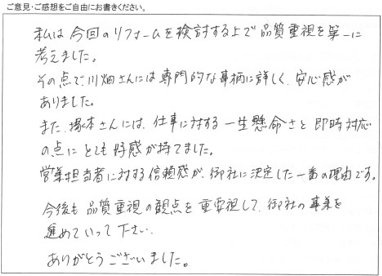 ご意見・ご感想をご自由にお書きください。
私は今回のリフォームを検討する上で品質重視を第一に
考えました。
その点で川畑さんには専門的な事柄に詳しく、安心感が
ありました。
また、塚本さんには、仕事に対する一生懸命さと即時対応
の点にとても好感が持てました。
営業担当者に対する信頼感が、御社に決定した一番の理由です。
今後も品質重視の観点を重要視して、御社の事業を
進めていって下さい。
ありがとうございました。